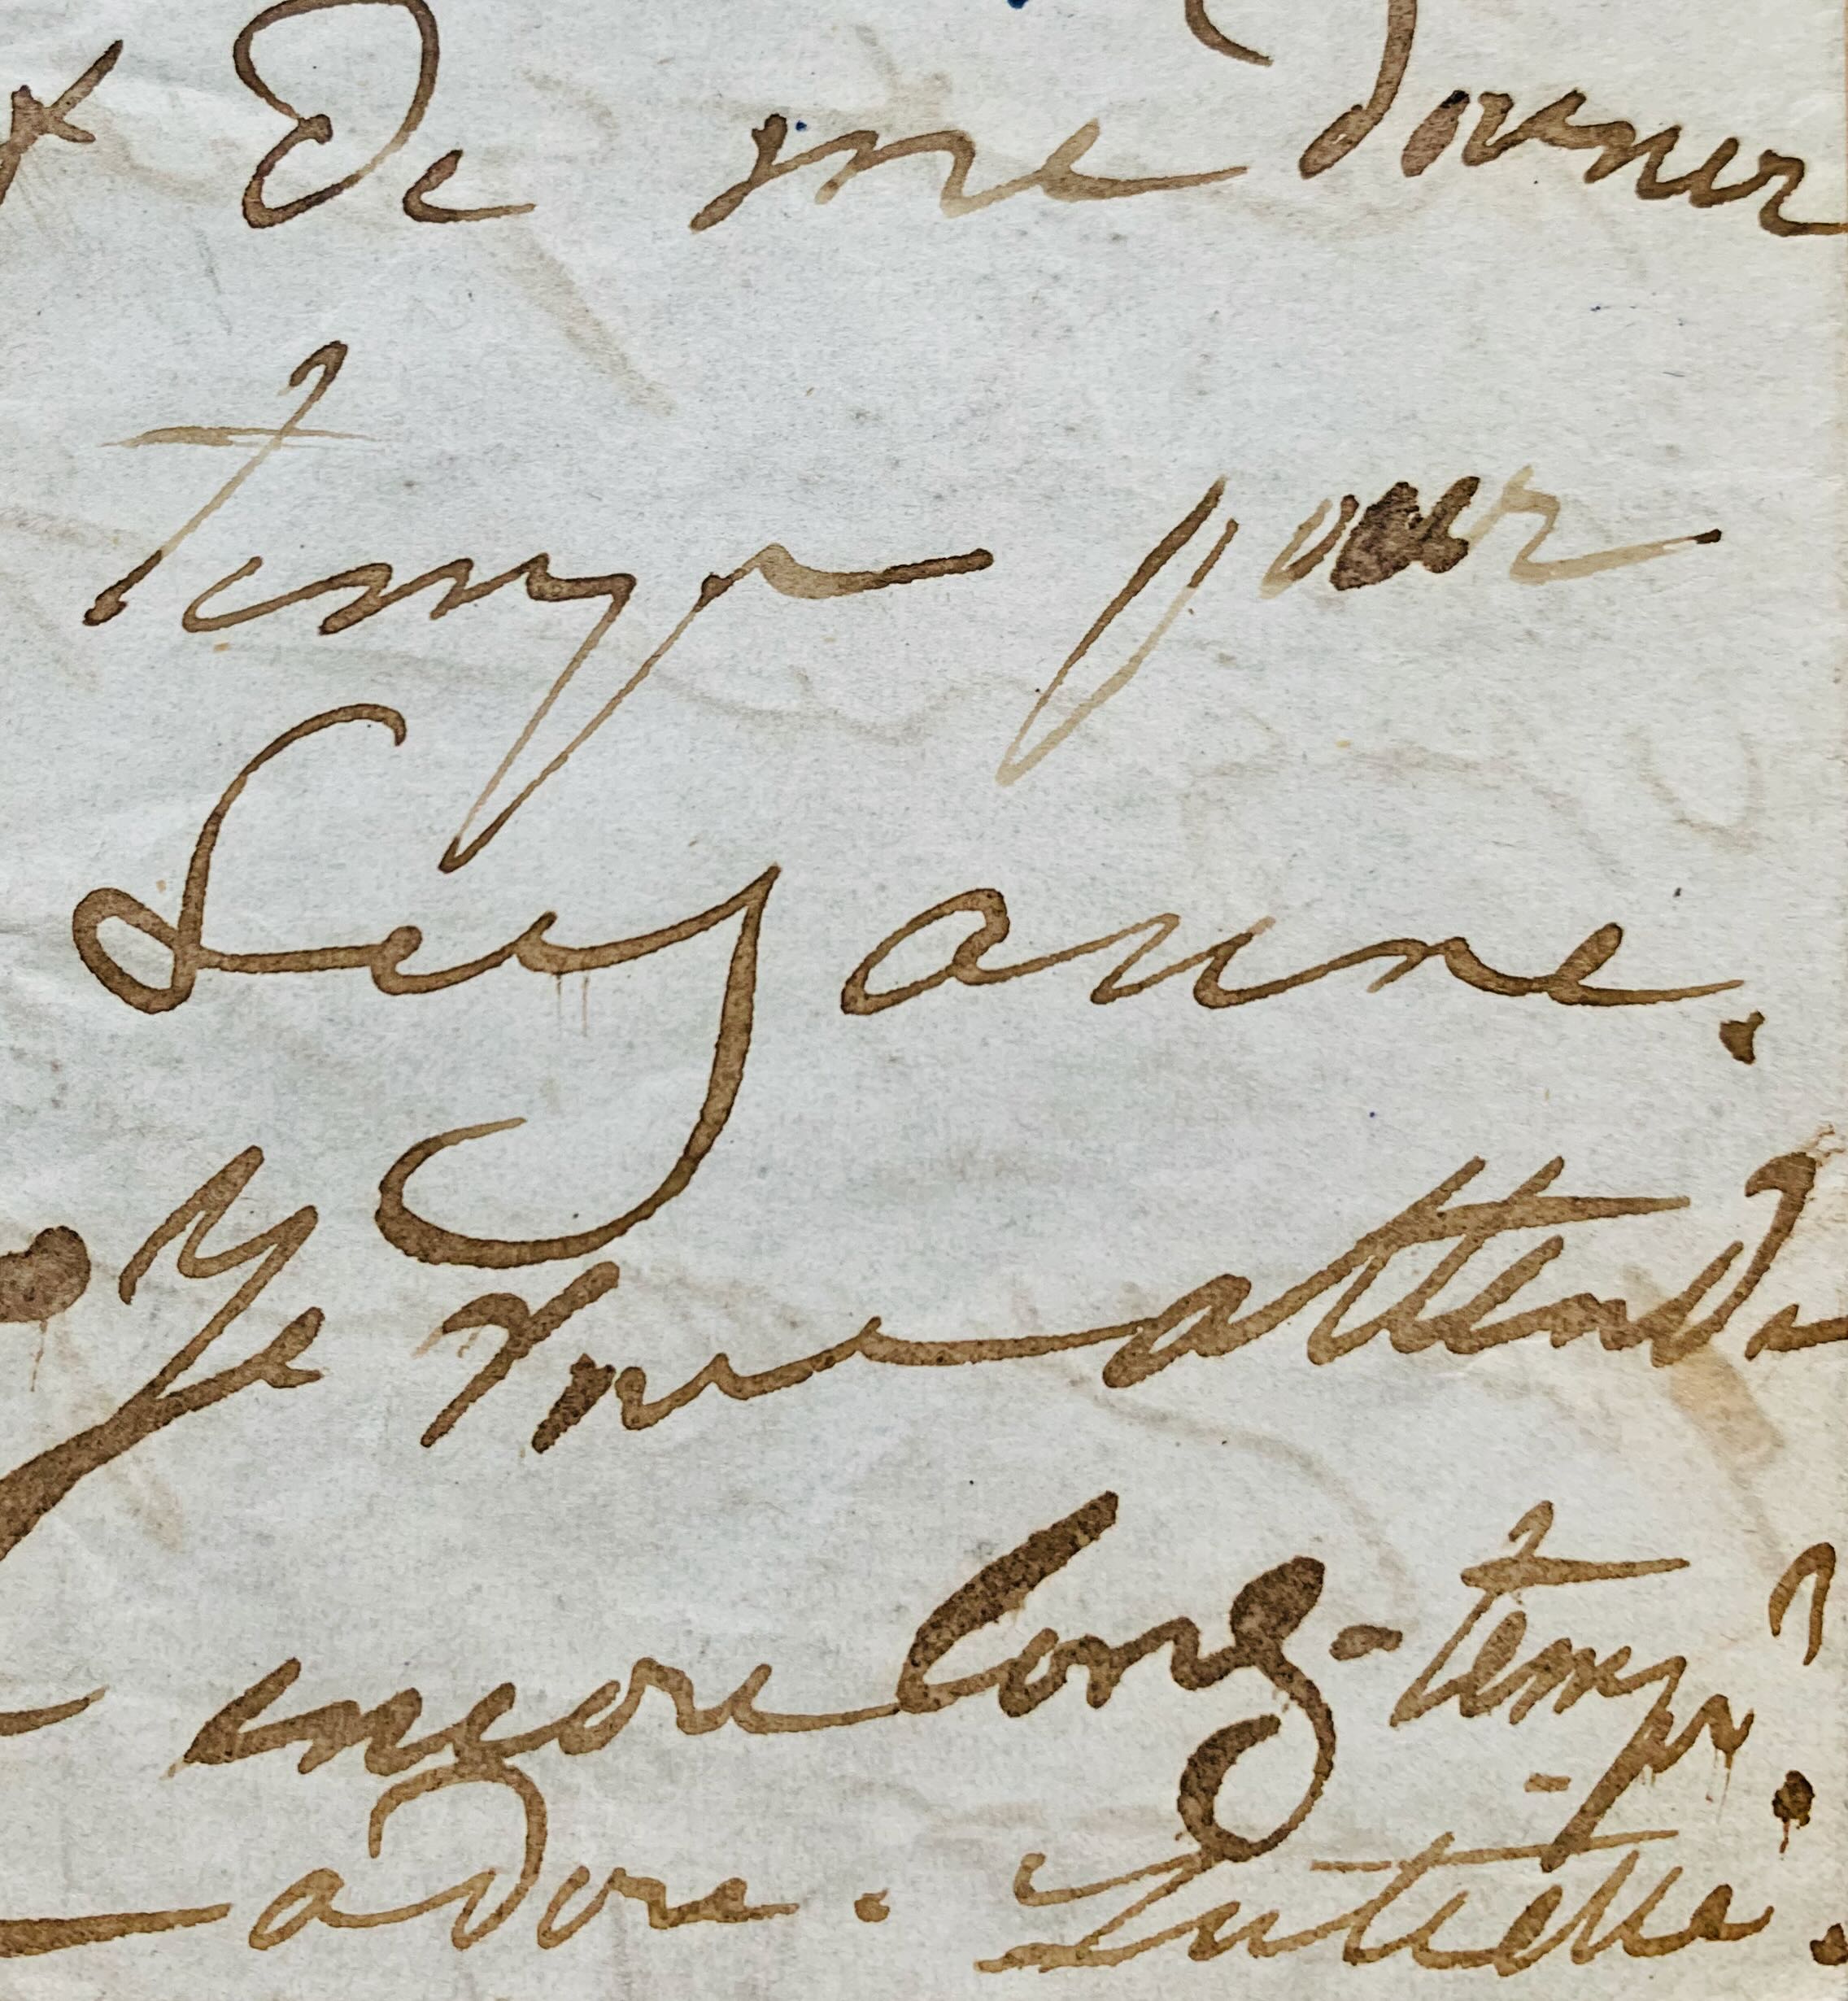 x de me donner
temps pour
Suzanne.
Je me attends
encore long-temps?
adore. Juliette.